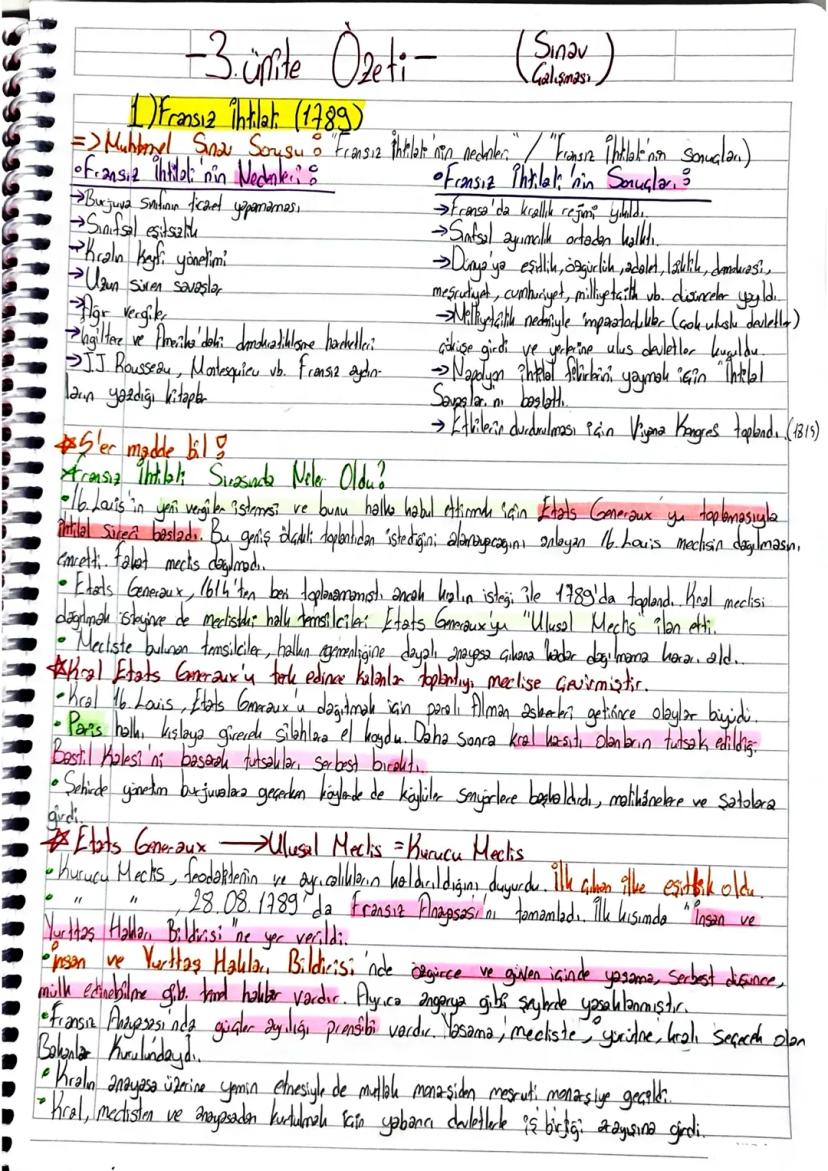 -3. ünite Özeti- (Sınav Çalışması)
1) Fransız İhtilali (1789)
=> Muhtemel Sınav Sorusu: "Fransız İhtilali'nin nedenleri" / "Fransız İhtilali'nin sonuçları)
• Fransız İhtilali'nin Nedenleri:
→ Burjuva sınıfının ticaret yapamaması
→ Sınıfsal eşitsizlik
→ Kralın keyfi yönetimi
→ Uzun süren savaşlar
→ Ağır vergiler
→ İngiltere ve Amerika'daki demokratikleşme hareketleri
→ J.J. Rousseau, Montesquieu vb. Fransız aydın-
ların yazdığı kitaplar
• Fransız İhtilali'nin Sonuçları:
→ Fransa'da krallık rejimi yıkıldı.
→ Sınıfsal ayrımcılık ortadan kalktı.
→ Dünya'ya eşitlik, özgürlük, adalet, laiklik, demokrasi,
meşrutiyet, cumhuriyet, milliyetçilik vb. düşünceler yayıldı.
→ Milliyetçilik nedeniyle imparatorluklar (çok uluslu devletler)
çöküşe girdi ve yerlerine ulus devletler kuruldu.
→ Napolyon ihtilal fikirlerini yaymak için "İhtilal
Savaşları"nı başlattı.
→ Etkilerin durdurulması için Viyana Kongresi toplandı. (1815)
☆ 5'er madde bil!
☆ Fransız İhtilali Sırasında Neler Oldu?
• 16. Louis'in yeni vergiler istemesi ve bunu halka kabul ettirmek için Etats Generaux'yu toplamasıyla
ihtilal süreci başladı. Bu geniş ölçekli toplantıdan istediğini alamayacağını anlayan 16. Louis meclisin dağılmasını
emretti. Fakat meclis dağılmadı.
• Etats Generaux, 1614'ten beri toplanamamıştı ancak kralın isteği ile 1789'da toplandı. Kral meclisi
dağıtmak isteyince de meclisteki halk temsilcileri Etats Generaux'yu "Ulusal Meclis" ilan etti.
• Mecliste bulunan temsilciler, halkın egemenliğine dayalı anayasa çıkana kadar dağılmama kararı aldı.
☆ Kral Etats Generaux'u terk edince kalanlar toplantıyı meclise çevirmiştir.
• Kral 16. Louis, Etats Generaux'u dağıtmak için paralı Alman askerleri getirince olaylar büyüdü.
• Paris halkı kışlaya girerek silahlara el koydu. Daha sonra kral karşıtı olanların tutsak edildiği
Bastil Kalesi'ni basarak tutsakları serbest bıraktı.
• Şehirde yönetim burjuvalara geçerken köylerde de köylüler senyörlere başkaldırdı, malikânelere ve şatolara
girdi.
☆ Etats Generaux → Ulusal Meclis = Kurucu Meclis
• Kurucu Meclis, feodalitenin ve ayrıcalıkların kaldırıldığını duyurdu. İlk çıkan ilke eşitlik oldu.
• " ", 28.08.1789'da Fransız Anayasası'nı tamamladı. İlk kısımda "İnsan ve
Yurttaş Hakları Bildirisi"ne yer verildi.
• İnsan ve Yurttaş Hakları Bildirisi'nde özgürce ve güven içinde yaşama, serbest düşünce,
mülk edinebilme gibi temel haklar vardır. Ayrıca angarya gibi şeylerde yasaklanmıştır.
• Fransız Anayasası'nda güçler ayrılığı prensibi vardır. Yasama, mecliste; yürütme, kralı seçecek olan
Bakanlar Kurulundaydı.
• Kralın anayasa üzerine yemin etmesiyle de mutlak monarşiden meşruti monarşiye geçildi.
• Kral, meclisten ve anayasadan kurtulmak için yabancı devletlerle iş birliği arayışına girdi.